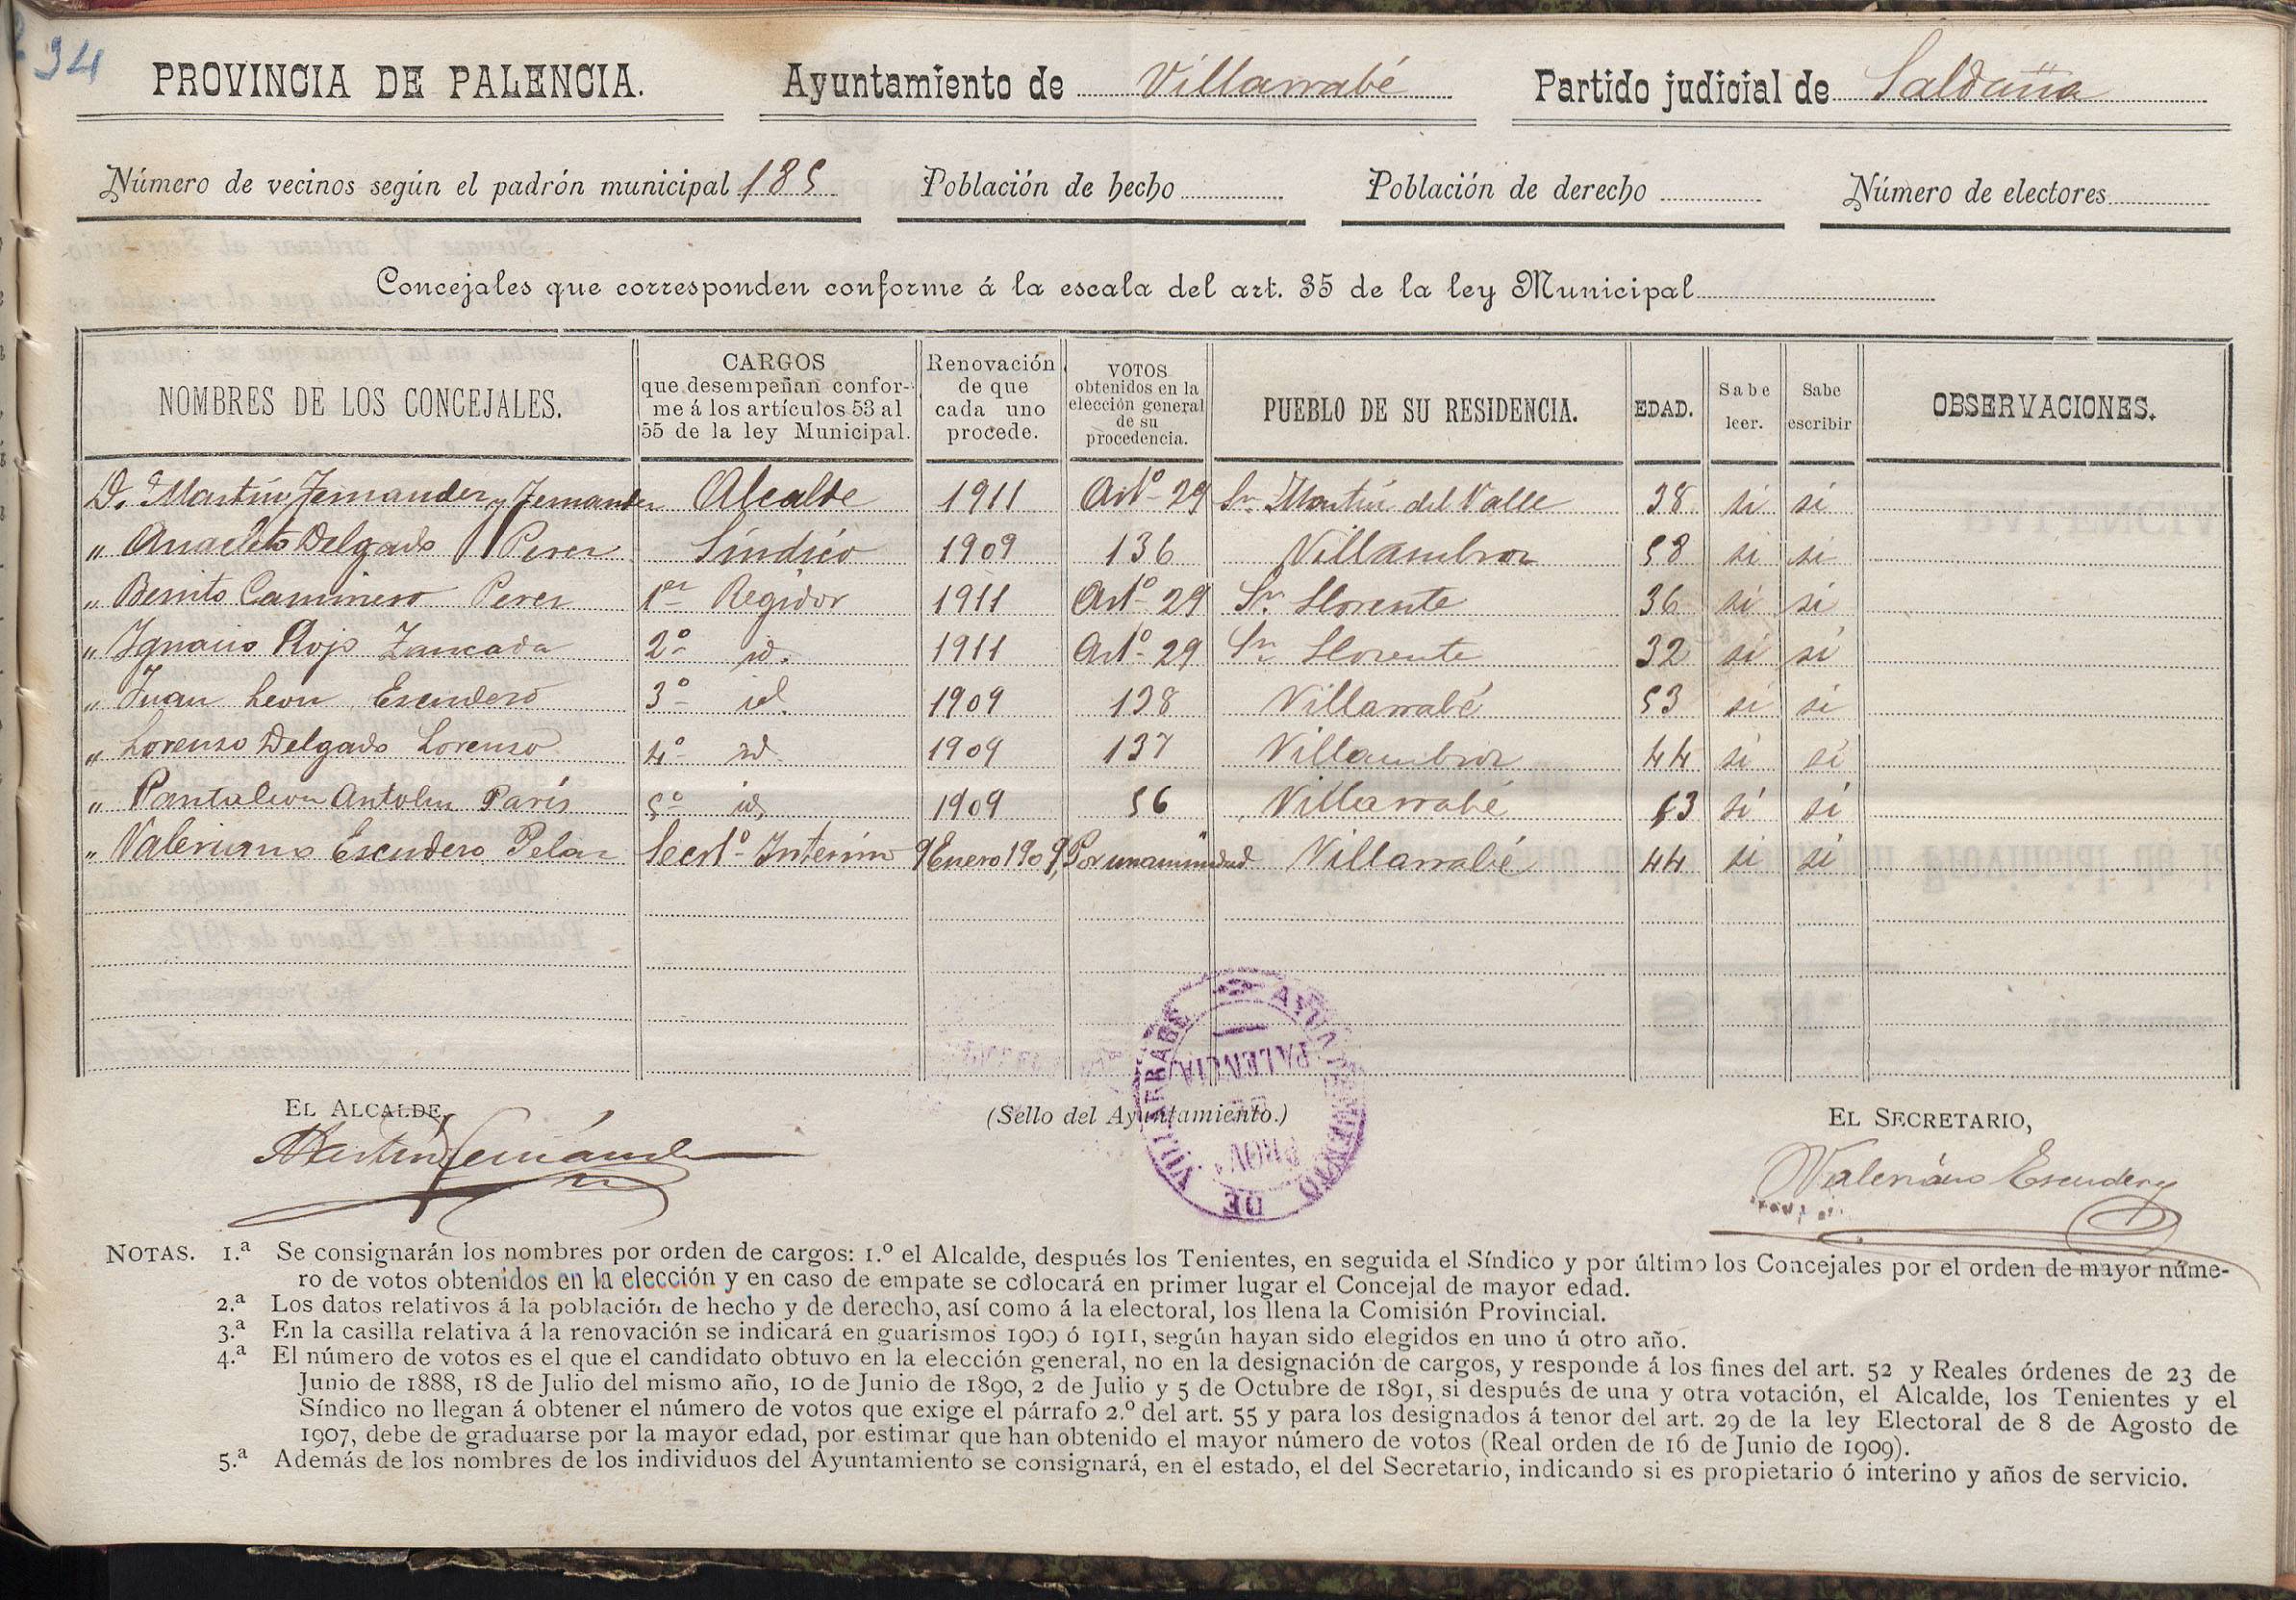 94
PROVINCIA DE PALENCIA.
Ayuntamiento de Villarrabé
Partido judicial de Saldaña
Número de vecinos según el padrón municipal 185
Población de hecho
Población de derecho
Número de electores
Concejales que corresponden conforme á la escala del art. 35 de la ley Municipal
NOMBRES DE LOS CONCEJALES. | CARGOS que desempeñan conforme á los artículos 53 al 55 de la ley Municipal. | Renovación de que cada uno procede. | VOTOS obtenidos en la elección general de su procedencia. | PUEBLO DE SU RESIDENCIA. | EDAD. | Sabe leer. | Sabe escribir | OBSERVACIONES.
D. Martín Fernandez y Fernandez Alcalde 1911 Artº 29 Sn. Martín del Valle 38 si si
" Anacleto Delgado Perez Síndico 1909 136 Villambroz 58 si si
" Benito Caminero Perez 1er Regidor 1911 Artº 29 Sn. Llorente 36 si si
" Ignacio Rojo Zancada 2º id. 1911 Artº 29 Sn Llorente 32 si si
" Juan Leon Escudero 3º id. 1909 138 Villarrabé 53 si si
" Lorenzo Delgado Lorenzo 4º id 1909 137 Villambroz 44 si si
" Pantaleon Antolin París 5º id 1909 56 Villarrabé 53 si si
" Valeriano Escudero Pelaz Secrtº Interino 9 Enero 1909 Por unanimidad Villarrabé 44 si si
EL ALCALDE,
Martín Fernández
(Sello del Ayuntamiento.)
AYUNTAMIENTO DE VILLARRABÉ
PROVª DE PALENCIA
EL SECRETARIO,
Valeriano Escudero
NOTAS. 1.ª Se consignarán los nombres por orden de cargos: 1.º el Alcalde, después los Tenientes, en seguida el Síndico y por último los Concejales por el orden de mayor núme-
ro de votos obtenidos en la elección y en caso de empate se colocará en primer lugar el Concejal de mayor edad.
2.ª Los datos relativos á la población de hecho y de derecho, así como á la electoral, los llena la Comisión Provincial.
3.ª En la casilla relativa á la renovación se indicará en guarismos 1909 ó 1911, según hayan sido elegidos en uno ú otro año.
4.ª El número de votos es el que el candidato obtuvo en la elección general, no en la designación de cargos, y responde á los fines del art. 52 y Reales órdenes de 23 de
Junio de 1888, 18 de Julio del mismo año, 10 de Junio de 1890, 2 de Julio y 5 de Octubre de 1891, si después de una y otra votación, el Alcalde, los Tenientes y el
Síndico no llegan á obtener el número de votos que exige el párrafo 2.º del art. 55 y para los designados á tenor del art. 29 de la ley Electoral de 8 de Agosto de
1907, debe de graduarse por la mayor edad, por estimar que han obtenido el mayor número de votos (Real orden de 16 de Junio de 1909).
5.ª Además de los nombres de los individuos del Ayuntamiento se consignará, en el estado, el del Secretario, indicando si es propietario ó interino y años de servicio.